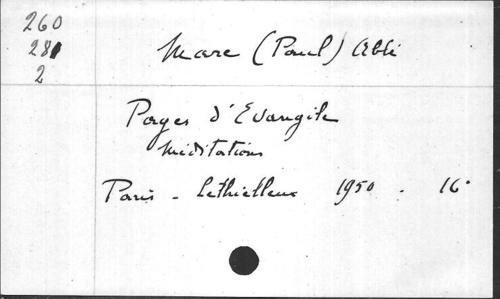 260
281
2
Marc (Paul) Abbé
Pages d'Evangile
Méditations
Paris - Lethielleux 1950 - 16°